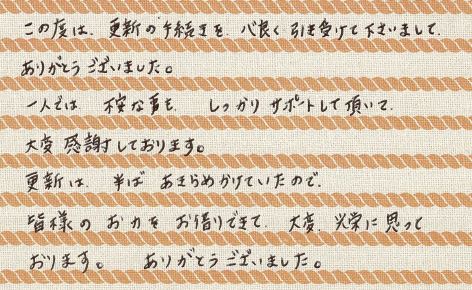 この度は、更新の手続きを、心良く引き受けて下さいまして、
ありがとうございました。
一人では 不安な事も、 しっかりサポートして頂いて、
大変 感謝しております。
更新は、半ば あきらめかけていたので、
皆様の お力を お借りできて、大変、光栄に思って
おります。 ありがとうございました。